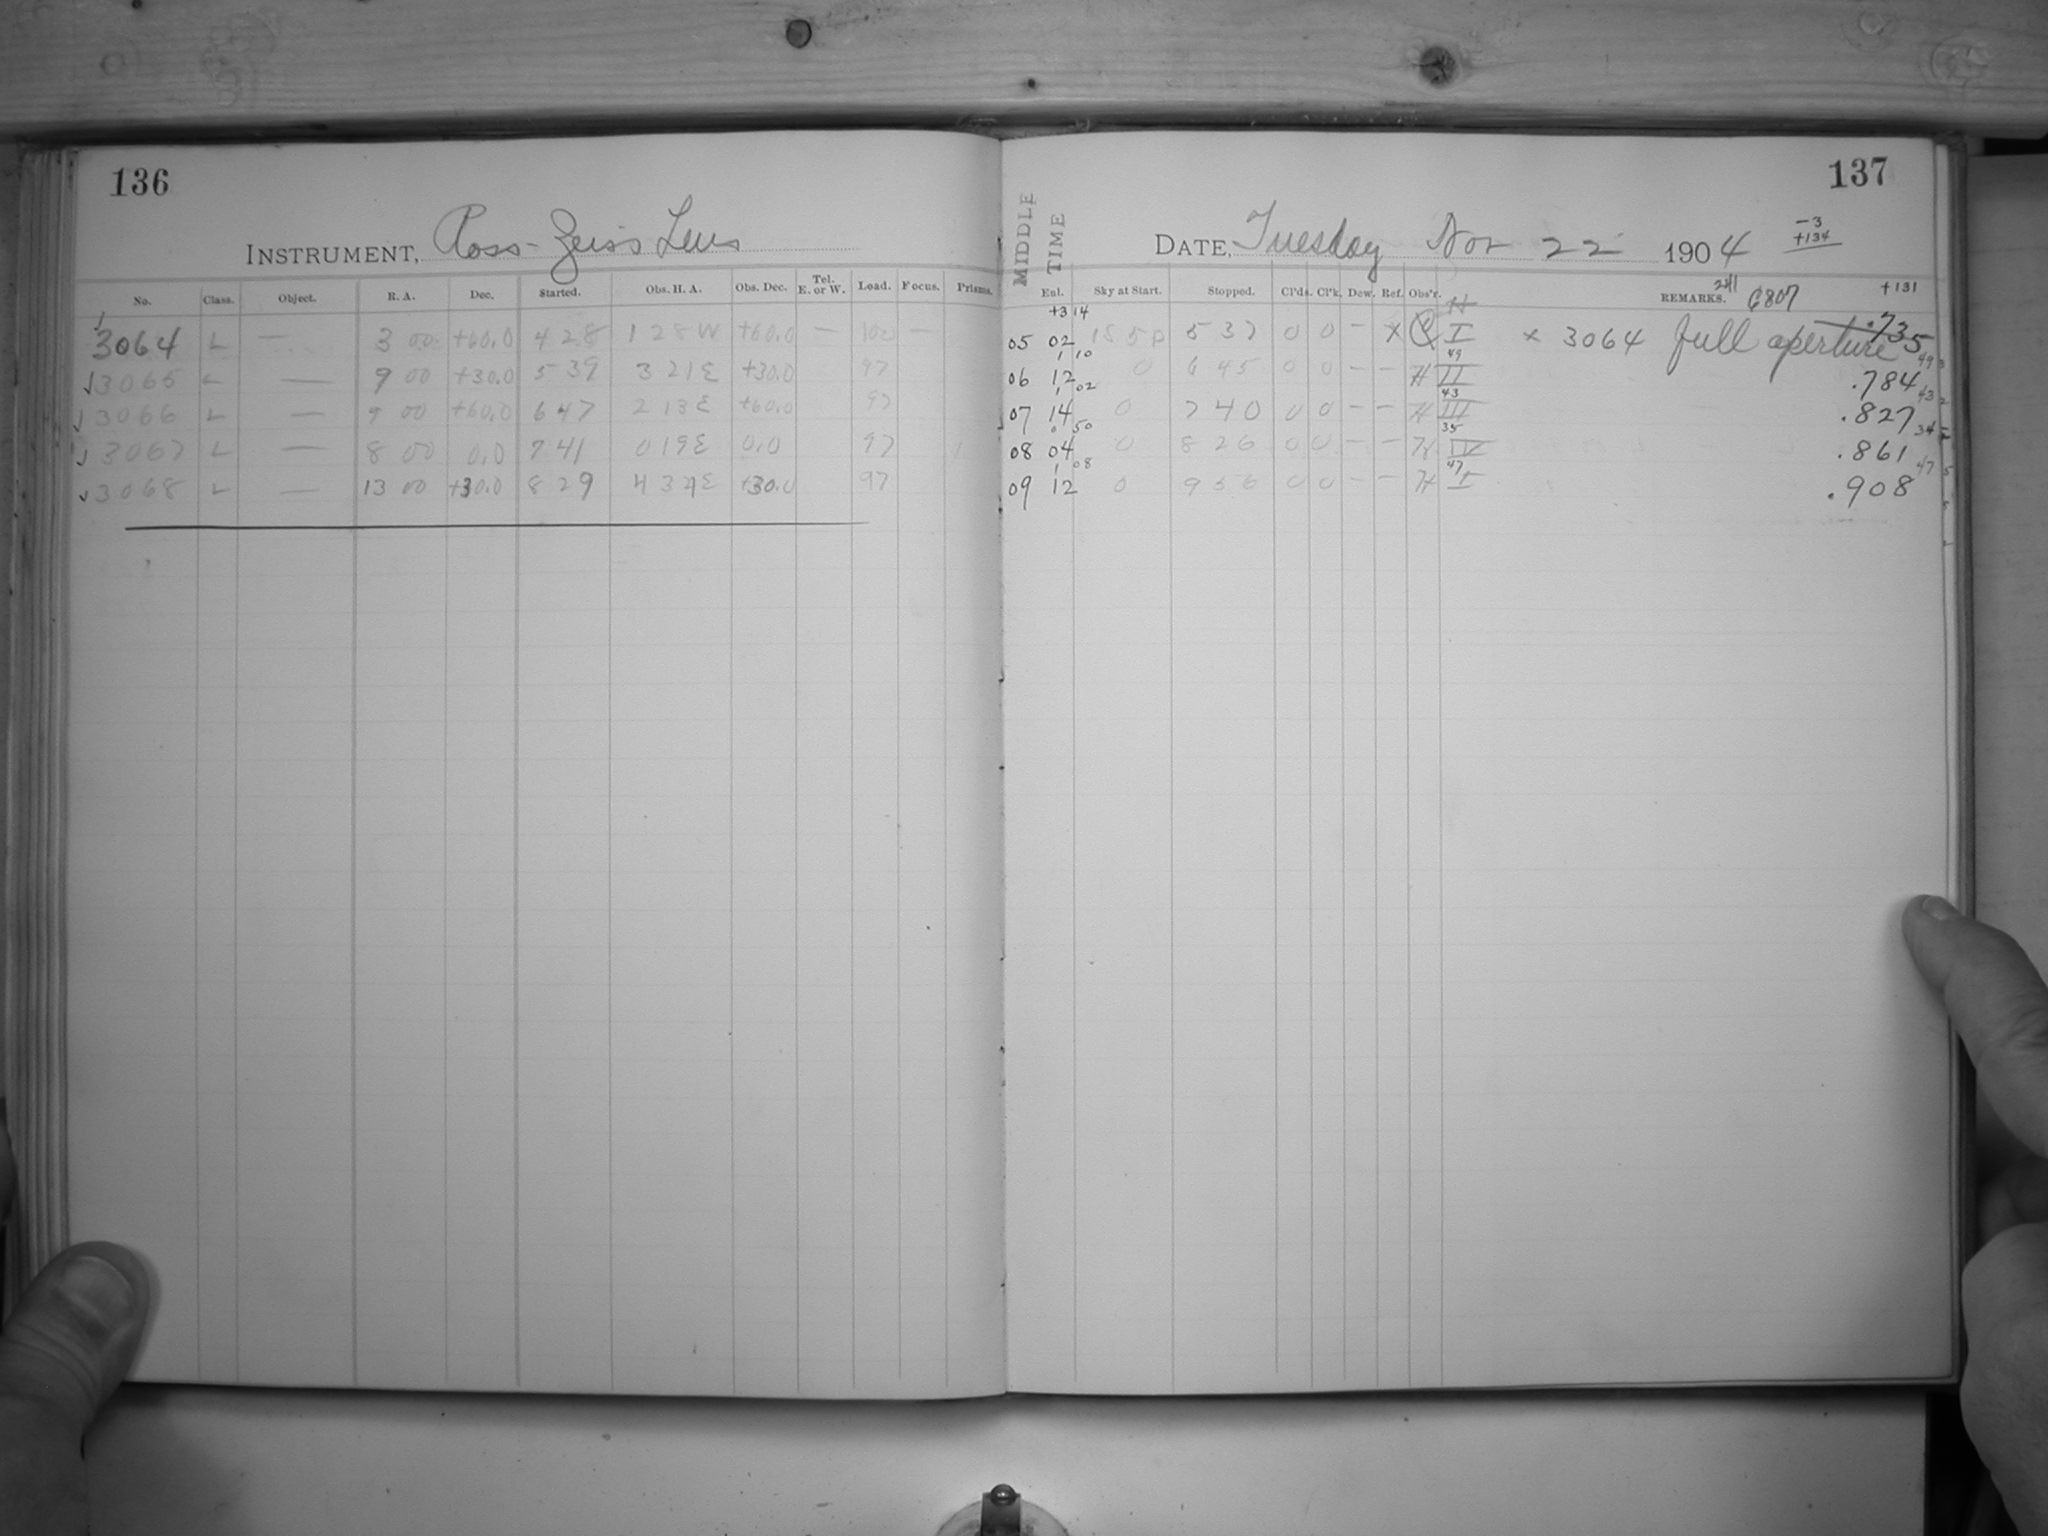 136
137
INSTRUMENT, Ross-Zeiss Lens
MIDDLE TIME
DATE, Tuesday Nov 22 1904
-3
+134
+131
No. Class. Object. R. A. Dec. Started. Obs. H. A. Obs. Dec. Tel. E. or W. Load. Focus. Prisms.
Ent. Sky at Start. Stopped. Cl'ds. Cl'k. Dew. Ref. Obs'r. REMARKS. 241 6807
+3 14
3064 L — 3 00 +60.0 4 28 1 28 W +60.0 — 100 —
05 02 5 37 0 0 - X I × 3064 full aperture .735
1 10 49 49
3065 L — 9 00 +30.0 5 39 3 21 E +30.0 97
06 12 0 6 45 0 0 - - H II .784
1 02 43 43
3066 L — 9 00 +60.0 6 47 2 13 E +60.0 97
07 14 0 7 40 0 0 - - H III .827
0 50 35 34
3067 L — 8 00 0.0 7 41 0 19 E 0.0 97
08 04 0 8 26 0 0 - - H IV .861
1 08 47 47
3068 L — 13 00 +30.0 8 29 4 32 E +30.0 97
09 12 0 9 56 0 0 - - H I .908